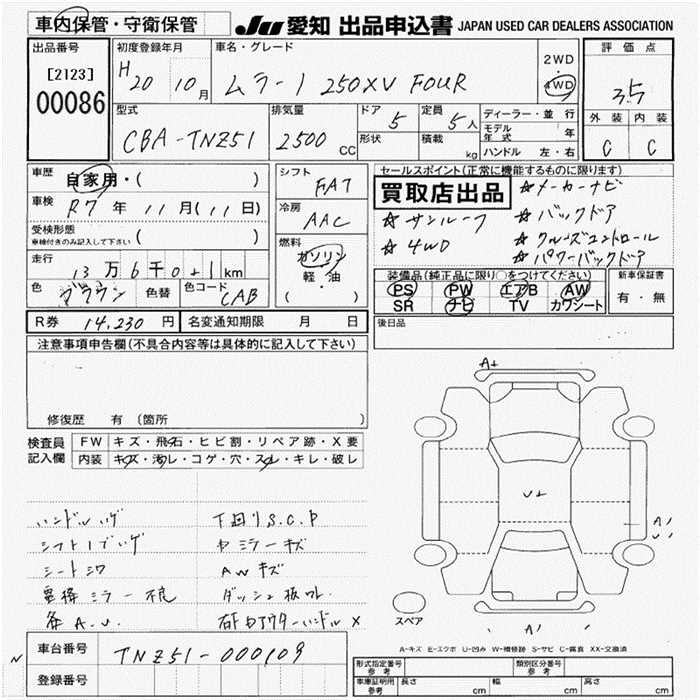 車内保管・守衛保管
JU 愛知 出品申込書 JAPAN USED CAR DEALERS ASSOCIATION
出品番号
[2123]
00086
初度登録年月
H20 10月
車名・グレード
ムラーノ 250XV FOUR
2WD
4WD
評価点
3.5
外装 内装
C C
型式
CBA-TNZ51
排気量
2500 CC
ドア 5
形状
定員 5人
積載 kg
ディーラー・並行
モデル年式 年
ハンドル 左・右
車歴 自家用・( )
車検 R7年 11月 (11日)
受検形態
車検付きのみ記入して下さい ( )
走行 13万6千0+1km
色 ブラウン 色替 色コード CAB
シフト FAT
冷房 AAC
燃料
ガソリン
軽・油
( ・ )
セールスポイント(正常に機能するものに限ります)
買取店出品
☆サンルーフ
☆4WD
☆メーカーナビ
☆バックドア
☆クルーズコントロール
☆パワーバックドア
装備品(純正品に限り○をつけてください)
PS PW エアB AW
SR ナビ TV カワシート
新車保証書
有・無
R券 14,230円 名変通知期限 月 日
後日品
注意事項申告欄(不具合内容等は具体的に記入して下さい)
修復歴 有 (箇所 )
検査員
記入欄
FW キズ・飛石・ヒビ割・リペア跡・X要
内装 キズ・汚レ・コゲ・穴・スレ・キレ・破レ
ハンドルハゲ 下回りS.C.P
シフトノブハゲ ヤミラーキズ
シートシワ AWキズ
電格ミラー不良 ダッシュ板ワレ
各A.U. 右ドアアウターハンドルX
A+
U+
A1
U1
A1
スペア
A-キズ E-エクボ U-凹み W-補修跡 S-サビ C-腐食 XX-交換済
車台番号 TNZ51-000109
登録番号
形式指定番号 参考
類別区分番号 参考
車庫証明用 参考 長さ cm 幅 cm 高さ cm